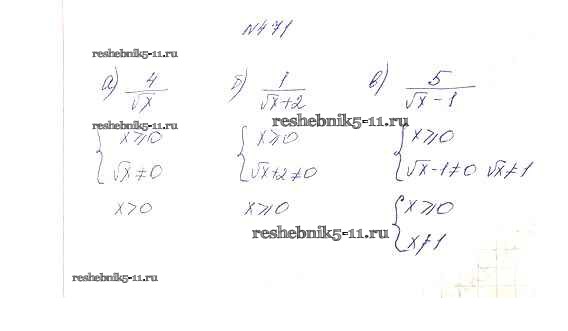 №471
reshebnik5-11.ru
а) 4/√x б) 1/√x+2 в) 5/√x-1
reshebnik5-11.ru reshebnik5-11.ru
{x⩾0 {x⩾0 {x⩾0
√x≠0 √x+2≠0 √x-1≠0 √x≠1
x>0 x⩾0 {x⩾0
reshebnik5-11.ru x≠1
reshebnik5-11.ru